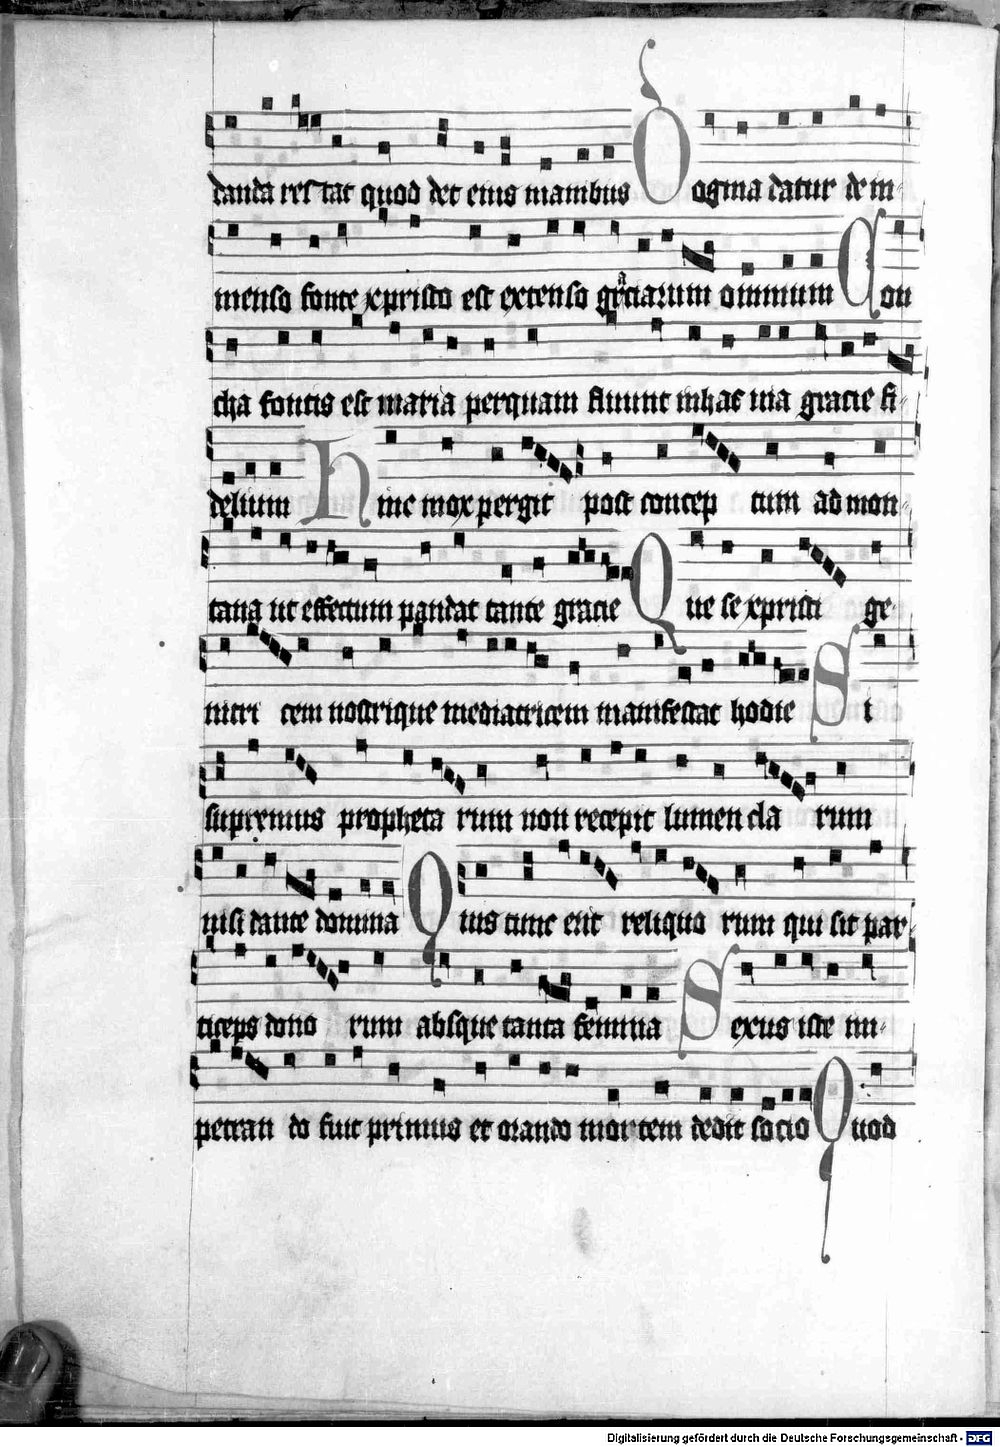 danda res tat quod det eius manibus Dogma datur de in-
menso fonte xpristo est extenso graciarum omnium Con
cha fontis est maria perquam fluunt inhac via gracie fi-
delium Hinc mox pergit post concep tum ad mon-
tana ut effectum pandat tante gracie Que se xpristi ge-
nitri cem nostrique mediatricem manifestat hodie Si
supremus propheta rum non recepit lumen cla rum
nisi dante domina Quis tunc erit reliquo rum qui sit par-
ticeps dono rum absque tanta femina Sexus iste im-
petran do fuit primus et orando mortem dedit socio Quod
Digitalisierung gefördert durch die Deutsche Forschungsgemeinschaft - DFG